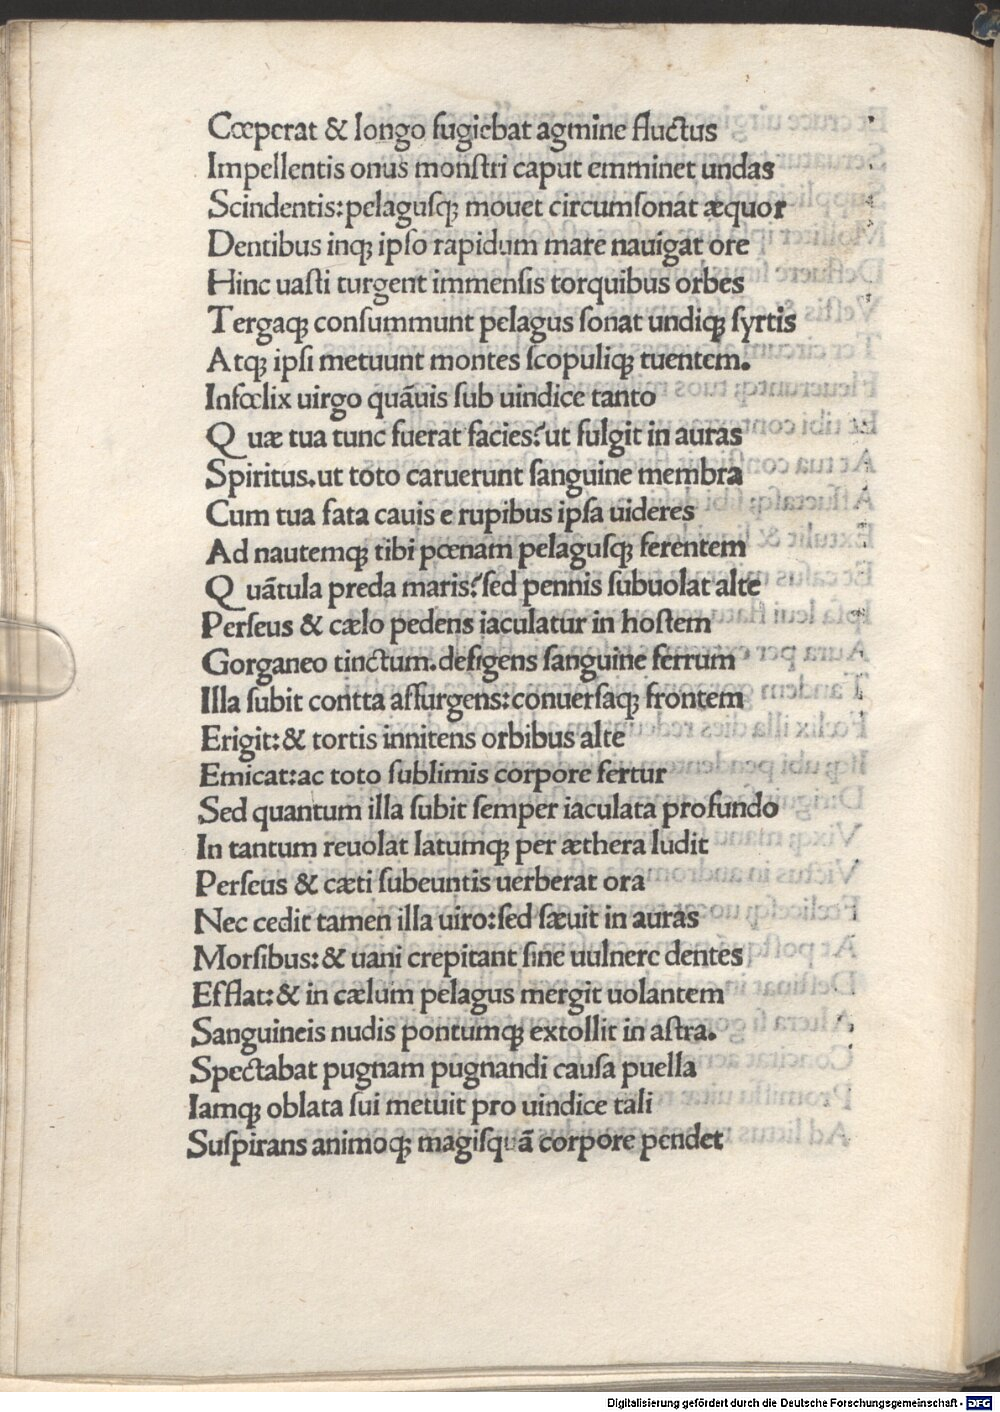 Cœperat & longo fugiebat agmine fluctus
Impellentis onus monſtri caput emminet undas
Scindentis:pelaguſq; mouet circumſonat æquor
Dentibus inq; ipſo rapidum mare nauigat ore
Hinc uaſti turgent immenſis torquibus orbes
Tergaq; conſummunt pelagus ſonat undiq; ſyrtis
Atq; ipſi metuunt montes ſcopuliq; tuentem.
Infœlix uirgo quãuis ſub uindice tanto
Q uæ tua tunc fuerat facies?ut fulgit in auras
Spiritus.ut toto caruerunt ſanguine membra
Cum tua fata cauis e rupibus ipſa uideres
Ad nautemq; tibi pœnam pelaguſq; ferentem
Q uãtula preda maris?ſed pennis ſubuolat alte
Perſeus & cælo pedens iaculatur in hoſtem
Gorganeo tinctum.defigens ſanguine ferrum
Illa ſubit contta aſſurgens:conuerſaq; frontem
Erigit:& tortis innitens orbibus alte
Emicat:ac toto ſublimis corpore fertur
Sed quantum illa ſubit ſemper iaculata profundo
In tantum reuolat latumq; per æthera ludit
Perſeus & cæti ſubeuntis uerberat ora
Nec cedit tamen illa uiro:ſed ſæuit in auras
Morſibus:& uani crepitant ſine uulnere dentes
Efflat:& in cælum pelagus mergit uolantem
Sanguineis nudis pontumq; extollit in aſtra.
Spectabat pugnam pugnandi cauſa puella
Iamq; oblata ſui metuit pro uindice tali
Suſpirans animoq; magiſquã corpore pendet
Digitalisierung gefördert durch die Deutsche Forschungsgemeinschaft - DFG